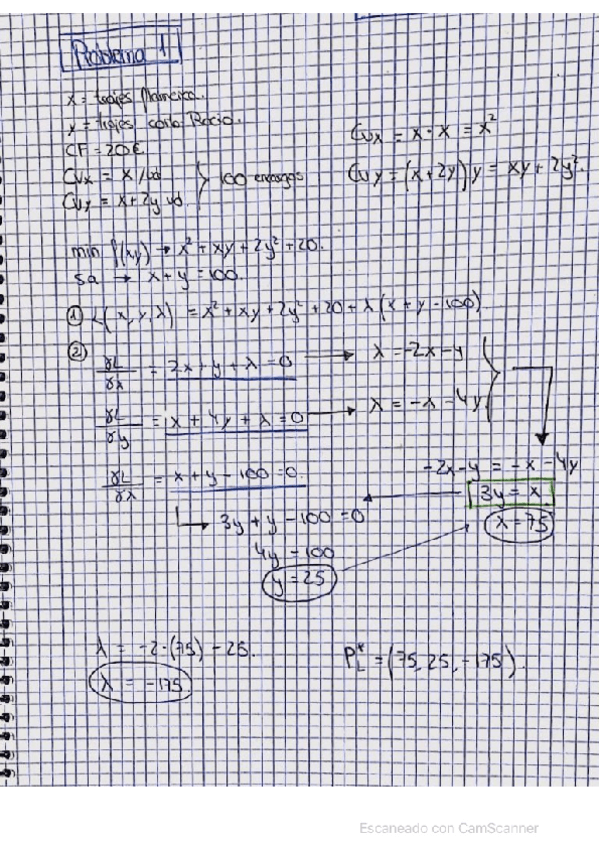 Problema 1
x = trajes flamenca.
y = trajes corto Rocio.
CF = 20€
CVx = x /ud
CVy = x + 2y ud.
100 encargos
CVx = x · x = x²
CVy = (x + 2y) y = xy + 2y².
min f(x,y) → x² + xy + 2y² + 20.
sa → x + y = 100.
① L(x, y, λ) = x² + xy + 2y² + 20 + λ(x + y - 100)
② ∂L/∂x = 2x + y + λ = 0 → λ = -2x - y
∂L/∂y = x + 4y + λ = 0 → λ = -x - 4y
-2x - y = -x - 4y
∂L/∂λ = x + y - 100 = 0.
3y = x
x = 75
3y + y - 100 = 0
4y = 100
y = 25
λ = -2·(75) - 25.
λ = -175
PL* = (75, 25, -175).
Escaneado con CamScanner